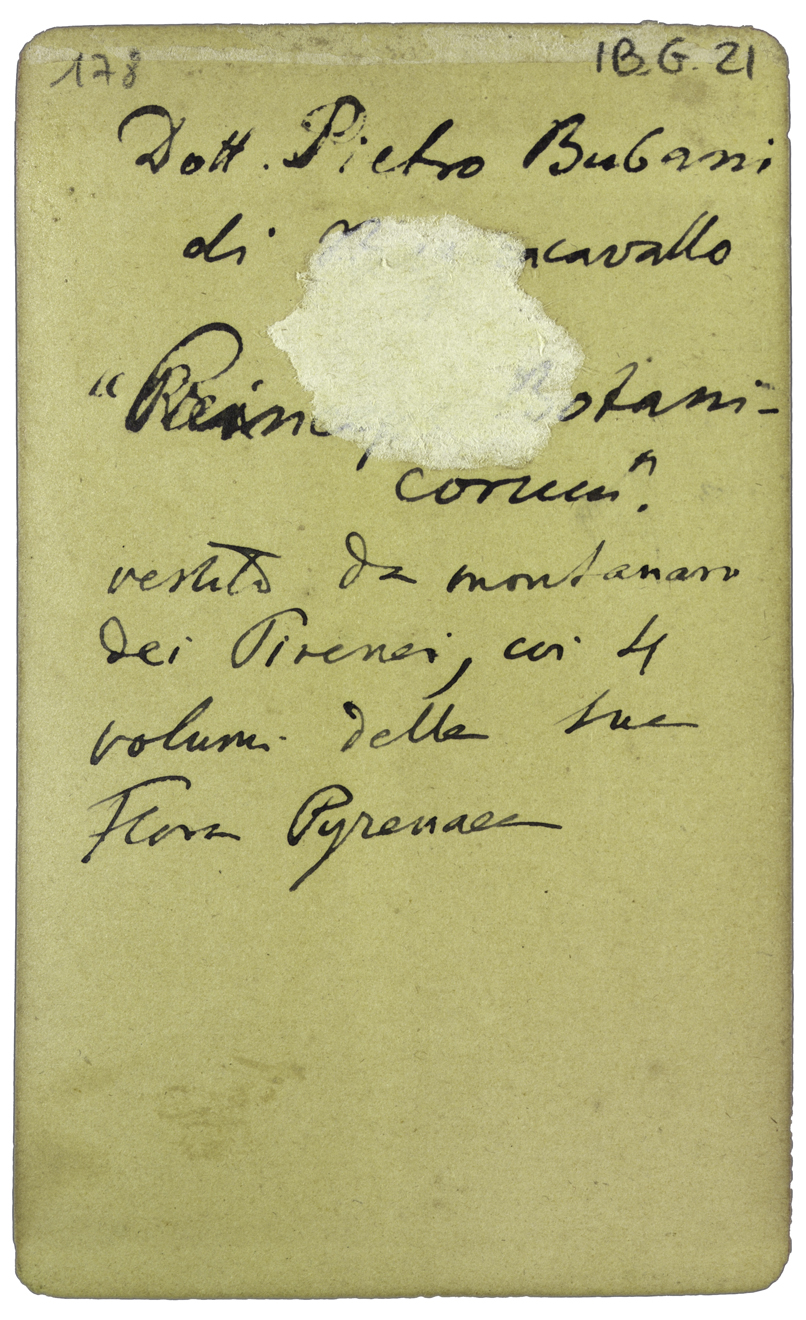 178
IB.G. 21
Dott. Pietro Bubani
di acavallo
" Botani-
corum".
vestito da montanaro
dei Pirenei, coi 4
volumi della sua
Flora Pyrenaea